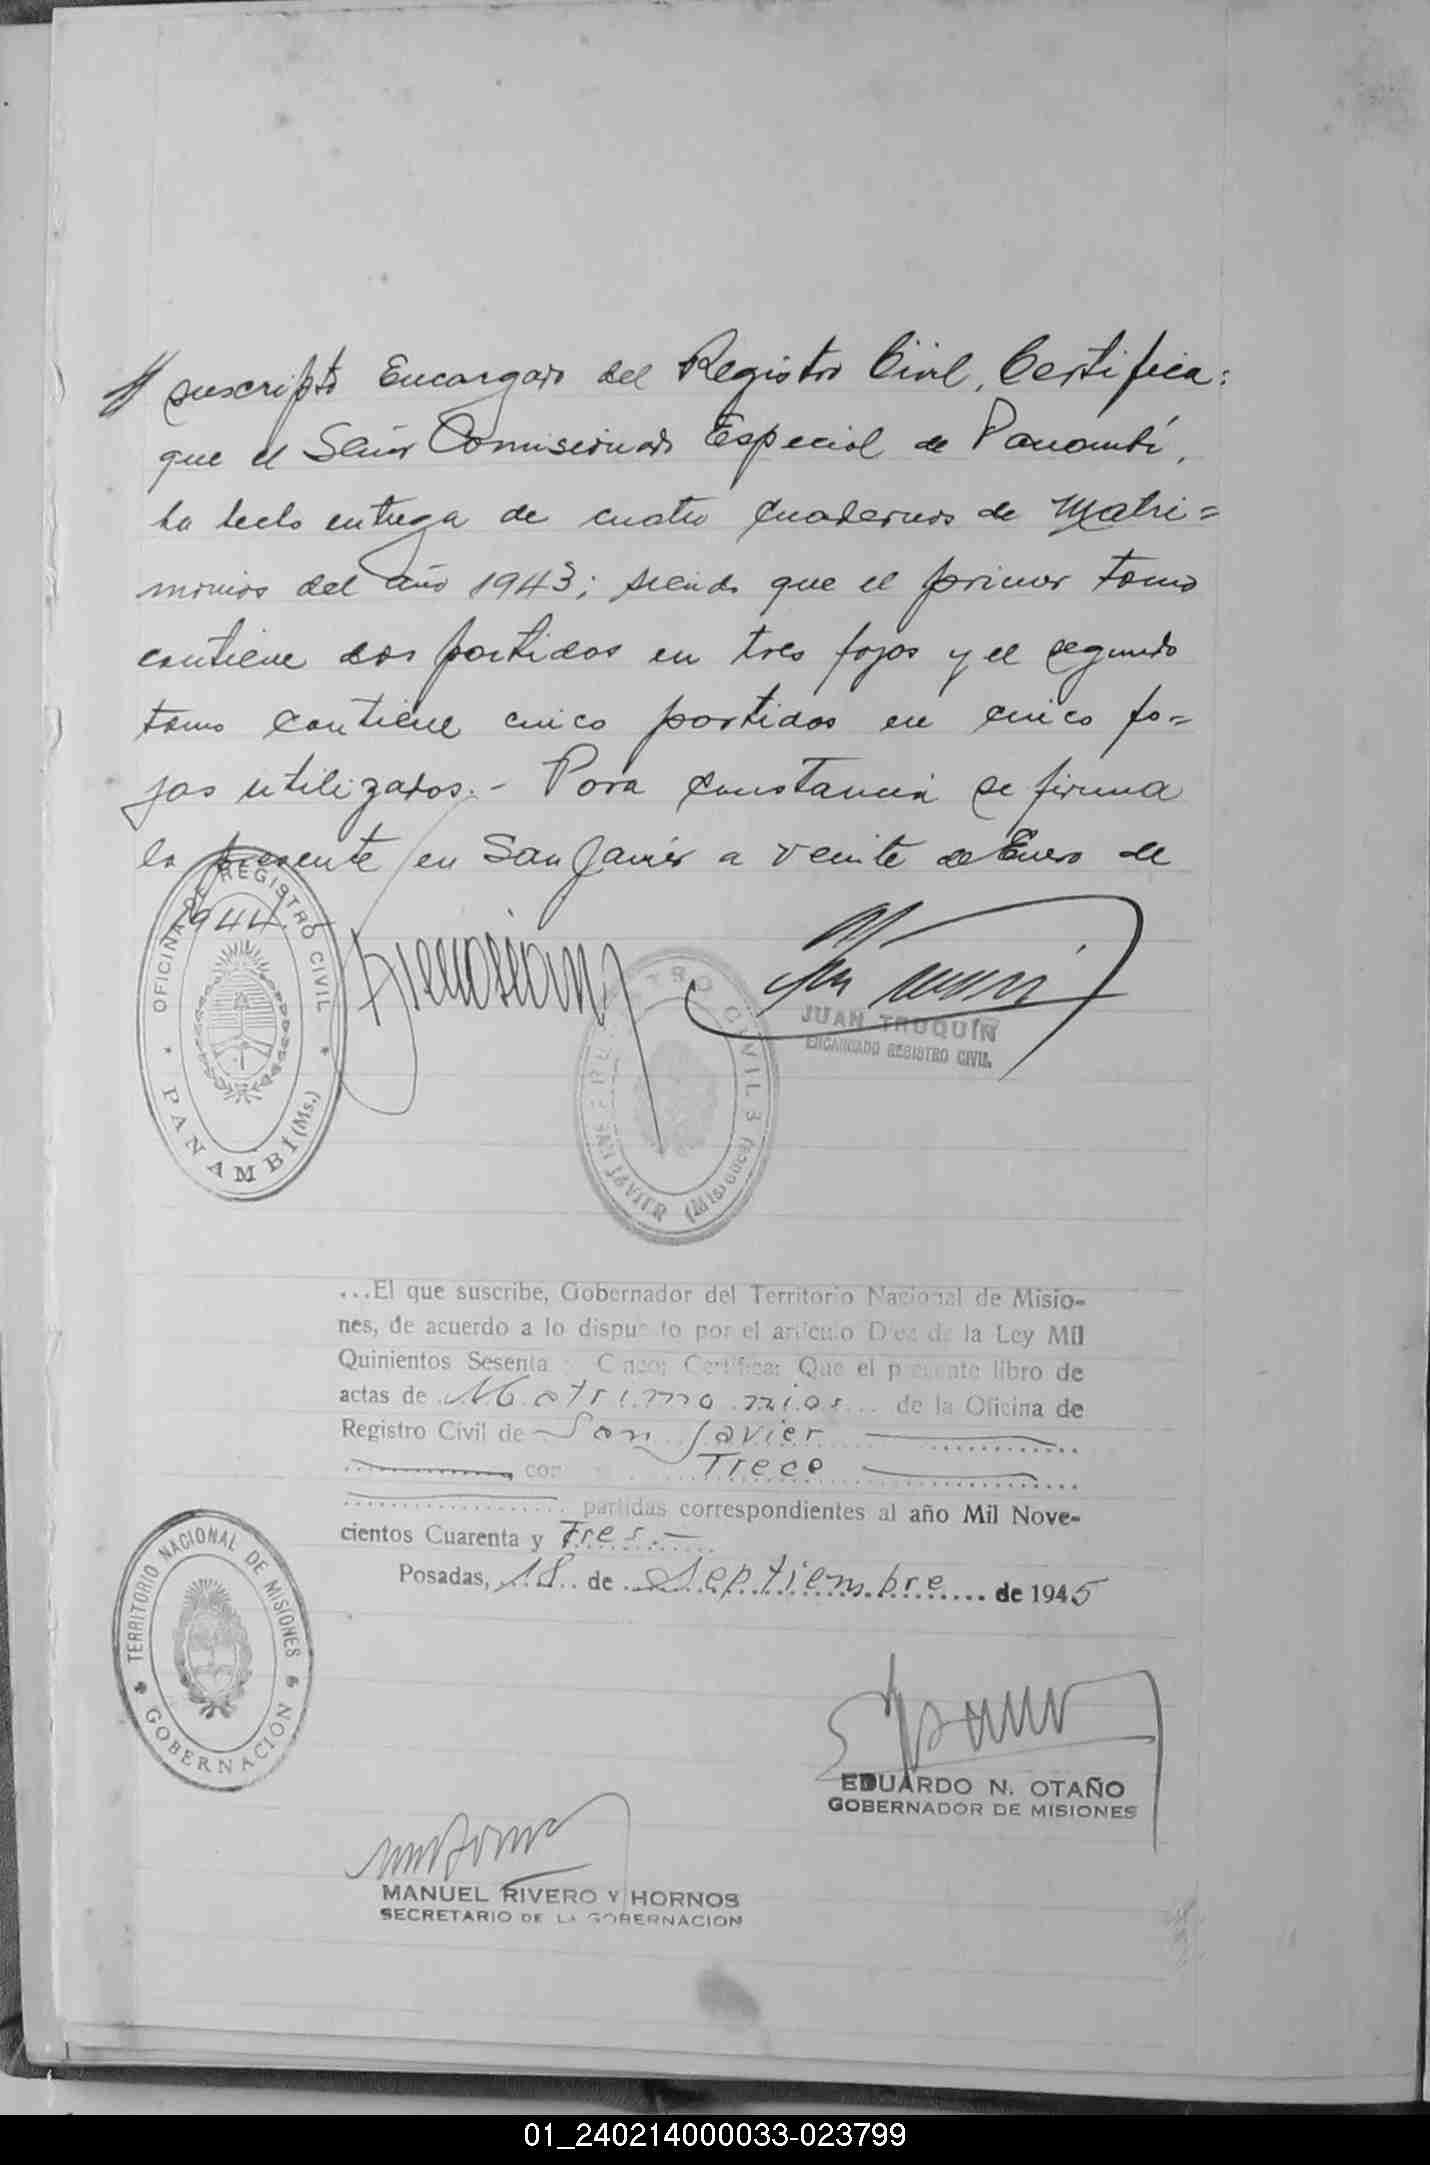 El suscripto Encargado del Registro Civil, Certifica:
que el Señor Comisionado Especial de Panambí,
ha hecho entrega de cuatro cuadernos de Matri=
monios del año 1943; siendo que el primer tomo
contiene dos partidas en tres fojas y el segundo
tomo contiene cinco partidas en cinco fo=
jas utilizados.- Para constancia se firma
la presente en San Javier a veinte de Enero de
1944.
OFICINA DE REGISTRO CIVIL
PANAMBÍ (Ms.)
REGISTRO CIVIL
SAN JAVIER (Misiones)
JUAN TRUQUÍN
ENCARGADO REGISTRO CIVIL
...El que suscribe, Gobernador del Territorio Nacional de Misio-
nes, de acuerdo a lo dispuesto por el artículo Diez de la Ley Mil
Quinientos Sesenta y Cinco; Certifica: Que el presente libro de
actas de Matrimonios de la Oficina de
Registro Civil de San Javier
con Trece
partidas correspondientes al año Mil Nove-
cientos Cuarenta y Tres.-
Posadas, 18 de Septiembre de 1945
TERRITORIO NACIONAL DE MISIONES
GOBERNACION
EDUARDO N. OTAÑO
GOBERNADOR DE MISIONES
MANUEL RIVERO Y HORNOS
SECRETARIO DE LA GOBERNACION
01_240214000033-023799